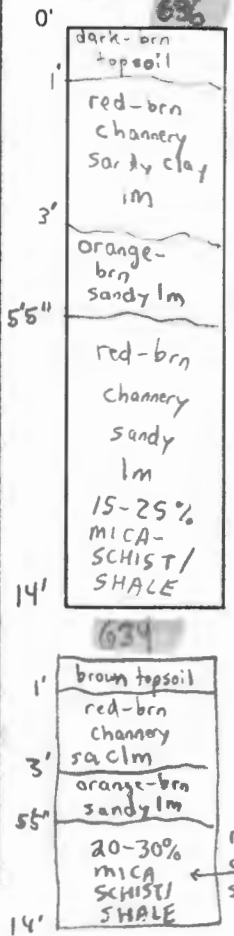 636
0'
dark-brn
topsoil
1'
red-brn
channery
sandy clay
lm
3'
orange-
brn
sandy lm
5'5"
red-brn
channery
sandy
lm
15-25%
MICA-
SCHIST/
SHALE
14'
634
brown topsoil
1'
red-brn
channery
saclm
3'
orange-brn
sandy lm
5'5"
20-30%
MICA
SCHIST/
SHALE
14'